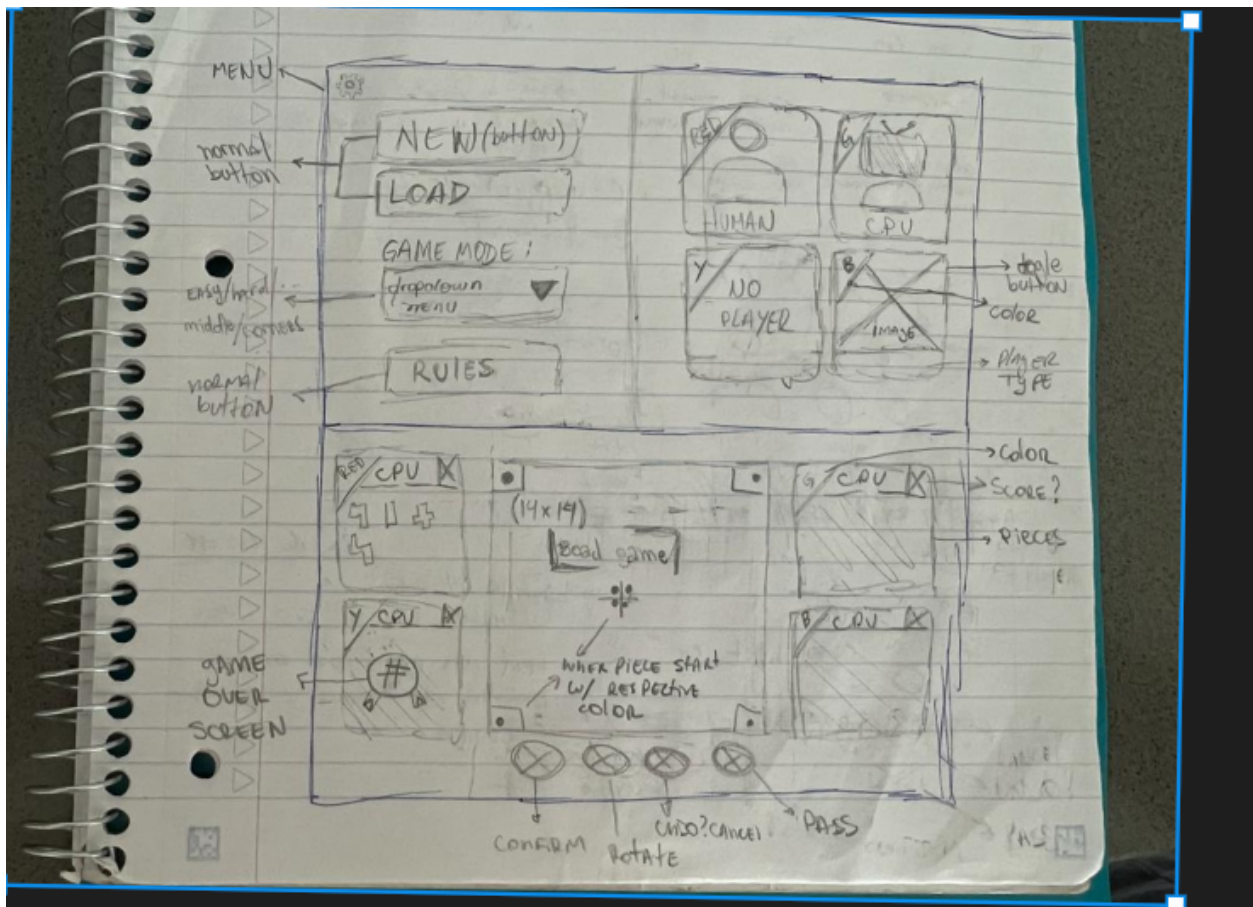 MENU
normal
button
NEW (button)
LOAD
GAME MODE:
dropdown
menu
Easy/hard
middle/corners
RULES
normal
button
RED
HUMAN
G
CPU
Y
NO
PLAYER
B
IMAGE
button
color
PlAYER
TYPE
RED CPU X
(14x14)
game
G CPU X
Color
SCORE?
PIECES
Y CPU X
#
B CPU X
WHEN PIECE START
W/ RESPECTIVE
COLOR
GAME
OVER
SCREEN
CONFIRM
ROTATE
UNDO?CANCEL
PASS